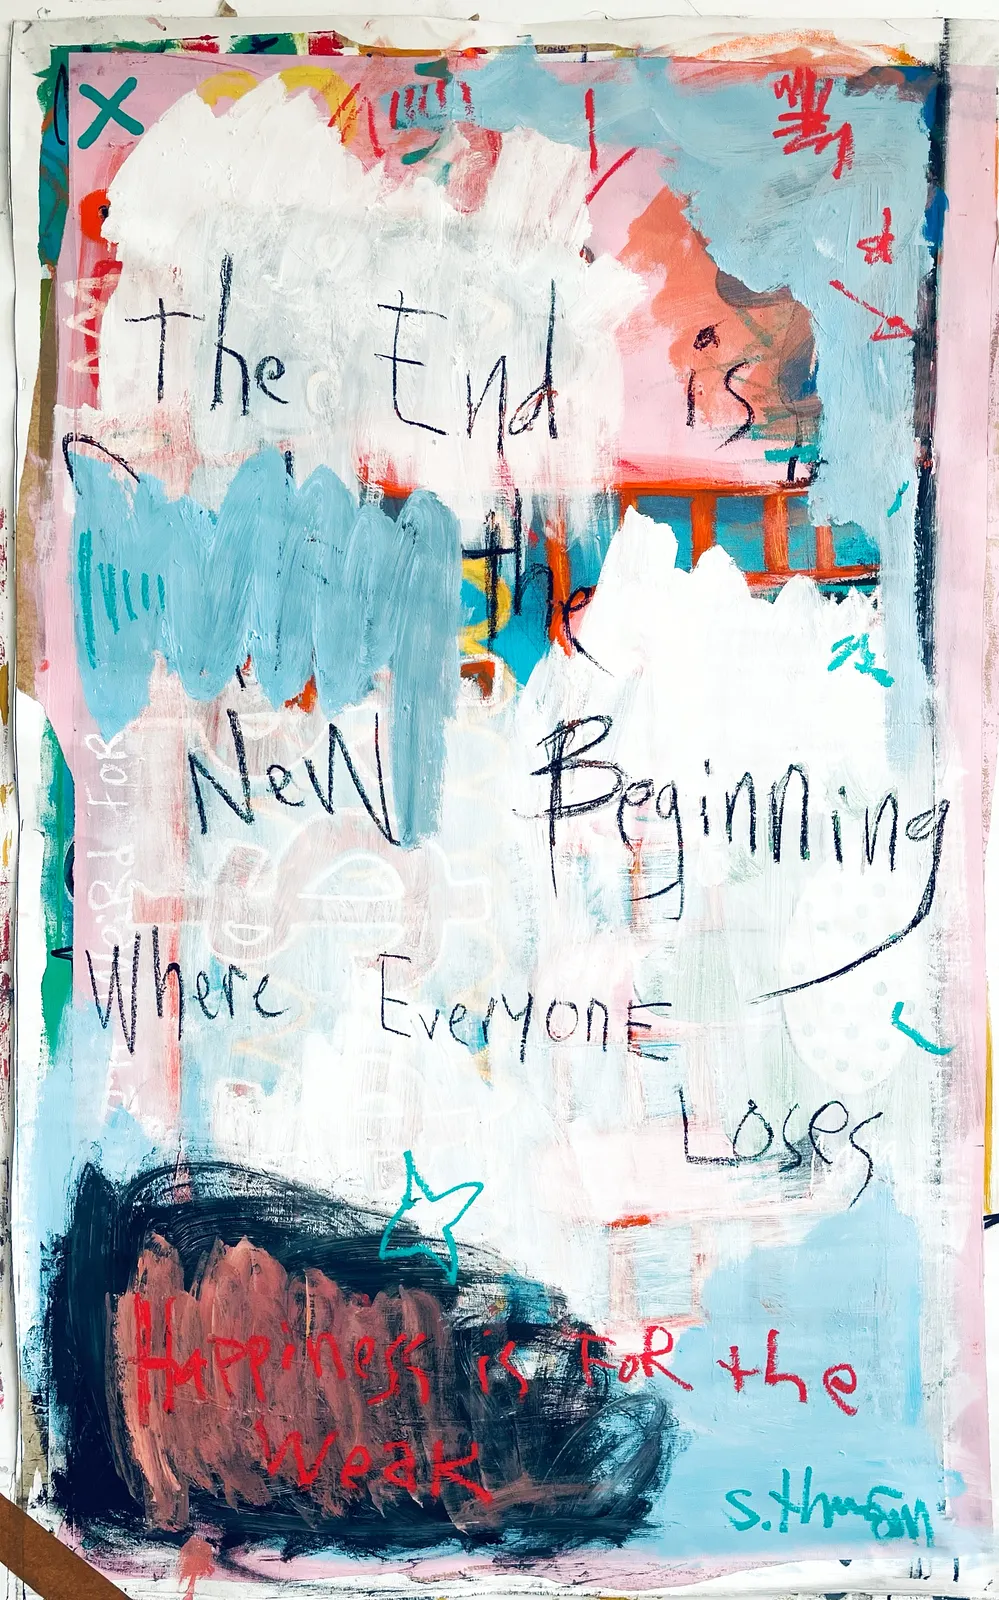 The End is
the
New Beginning
Where Everyone
Loses
Happiness is FOR the
weak
FOR